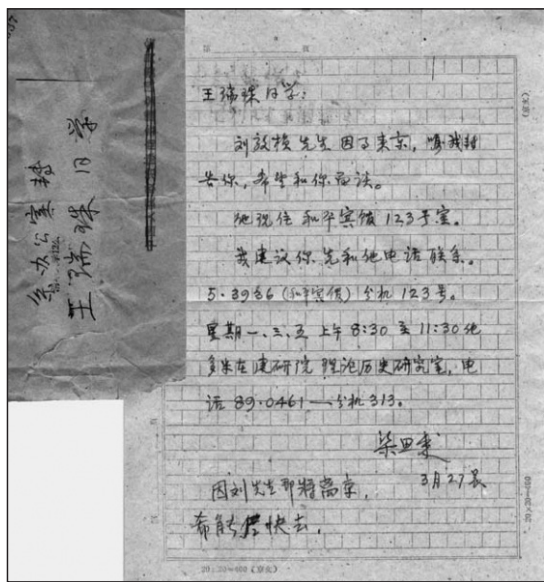 王瑞珠同学
王瑞珠同学：
刘敦桢先生因事来京，嘱我转
告你，希望和你面谈。
他现住和平宾馆123号室。
我建议你先和他电话联系。
5·3936（和平宾馆）分机123号。
星期一、三、五上午8:30至11:30他
多半在建研院理论历史研究室，电
话89·0461——分机313。
梁思成
3月27晨
因刘先生即将离京，
希能尽快去，
20×20=400
20×20=400（京文）